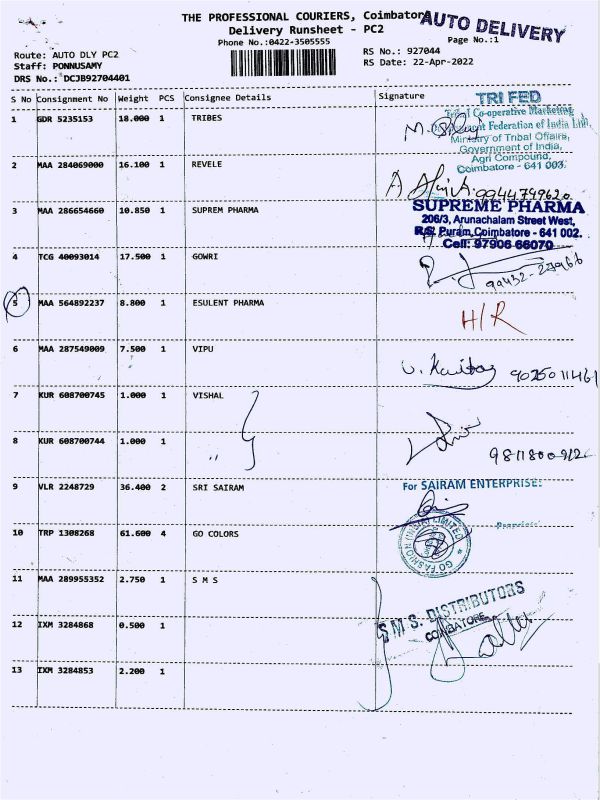 THE PROFESSIONAL COURIERS, Coimbatore
AUTO DELIVERY
Delivery Runsheet - PC2
Phone No.:0422-3505555
Page No.:1
Route: AUTO DLY PC2
RS No.: 927044
Staff: PONNUSAMY
RS Date: 22-Apr-2022
DRS No.: DCJB92704401
S No Consignment No Weight PCS Consignee Details Signature
1 GDR 5235153 18.000 1 TRIBES
TRI FED
Tribal Co-operative Marketing
Federation of India Ltd.
Ministry of Tribal Offairs,
Government of India,
Agri Compound,
Coimbatore - 641 003.
2 MAA 284069000 16.100 1 REVELE
9944749620
3 MAA 286654660 10.850 1 SUPREM PHARMA
SUPREME PHARMA
206/3, Arunachalam Street West,
R.S. Puram, Coimbatore - 641 002.
Cell: 97906 66070
4 TCG 40093014 17.500 1 GOWRI
99432-27966
5 MAA 564892237 8.800 1 ESULENT PHARMA
H/R
6 MAA 287549009 7.500 1 VIPU
9025011461
7 KUR 608700745 1.000 1 VISHAL
8 KUR 608700744 1.000 1 ,,
9 VLR 2248729 36.400 2 SRI SAIRAM
For SAIRAM ENTERPRISE
10 TRP 1308268 61.600 4 GO COLORS
GO FASHION (INDIA) LIMITED
11 MAA 289955352 2.750 1 S M S
S M S. DISTRIBUTORS
COINBATORE
12 IXM 3284868 0.500 1
13 IXM 3284853 2.200 1